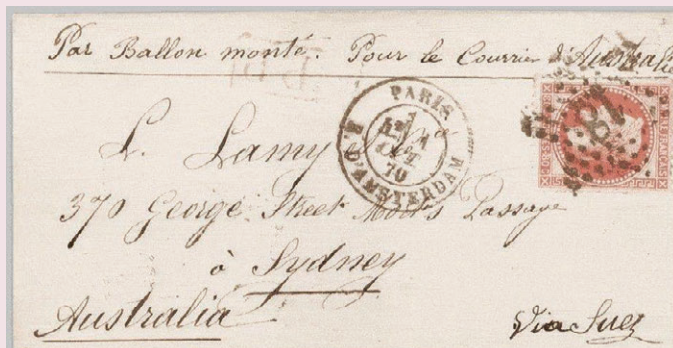 Par Ballon monté. Pour le Courrier d'Australie
PARIS
70
R. D'AMSTERDAM
18
L. Lamy
370 George Street Moort's Passage
à Sydney
Australia
Via Suez